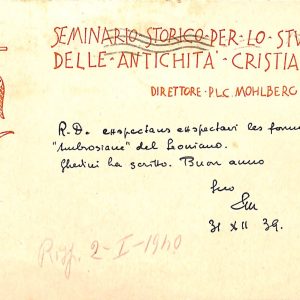 SEMINARIO·STORICO·PER·LO·STV
DELLE·ANTICHITÀ·CRISTIA
DIRETTORE·P.L.C. MOHLBERG
R.D. exspectans exspectavi les formu
"Ambrosiane" del Leoniano.
Ghedini ha scritto. Buon anno
Suo
31 XII 39.
Risp. 2-I-1940